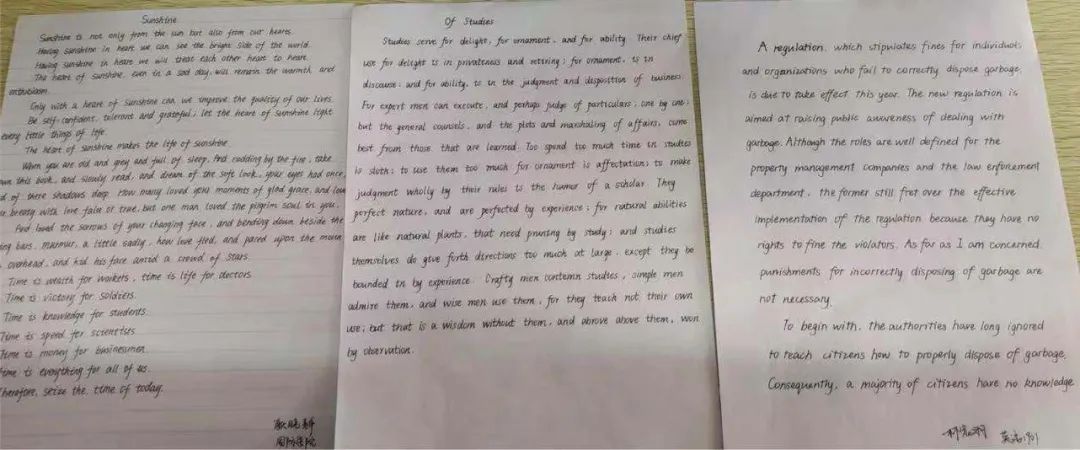 Sunshine
Sunshine is not only from the sun but also from our hearts.
Having sunshine in heart we can see the bright side of the world.
Having sunshine in heart we will treat each other heart to heart.
The heart of sunshine, even in a sad day, will remain the warmth, and
enthusiasm.
Only with a heart of sunshine can we improve the quality of our lives.
Be self-confident, tolerant and grateful; let the heart of sunshine light
every little things of life.
The heart of sunshine makes the life of sunshine.
When you are old and grey and full of sleep, And nodding by the fire, take
this book, and slowly read, and dream of the soft look, your eyes had once,
of there shadows deep. How many loved your moments of glad grace, and
beauty with love false or true, but one man loved the pilgrim soul in you,
And loved the sorrows of your changing face, and bending down beside the
bars, murmur, a little sadly, how love fled, and paced upon the moun
overhead, and hid his face amid a crowd of stars.
Time is wealth for workers, time is life for doctors
Time is victory for soldiers.
Time is knowledge for students.
Time is speed for scientists
Time is money for businessmen.
Time is everything for all of us.
Therefore, seize the time of today.
Of Studies
Studies serve for delight, for ornament, and for ability. Their chief
use for delight is in privateness and retiring; for ornament, is in
discourse; and for ability, is in the judgment and disposition of business.
For expert men can execute, and perhaps judge of particulars, one by one;
but the general counsels, and the plots and marshaling of affairs, come
best from those that are learned. Too spend too much time in studies
is sloth; to use them too much for ornament is affectation; to make
judgment wholly by their rules is the humor of a scholar. They
perfect nature, and are perfected by experience; for natural abilities
are like natural plants, that need pruning by study; and studies
themselves do give forth directions too much at large, except they be
bounded in by experience. Crafty men contemn studies, simple men
admire them, and wise men use them, for they teach not their own
use; but that is a wisdom without them, and above above them, won
by observation.
A regulation, which stipulates fines for individuals
and organizations who fail to correctly dispose garbage,
is due to take effect this year. The new regulation is
aimed at raising public awareness of dealing with
garbage. Although the roles are well defined for the
property management companies and the law enforcement
department, the former still fret over the effective
implementation of the regulation because they have no
rights to fine the violators. As far as I am concerned,
punishments for incorrectly disposing of garbage are
not necessary.
To begin with, the authorities have long ignored
to teach citizens how to properly dispose of garbage.
Consequently, a majority of citizens have no knowledge